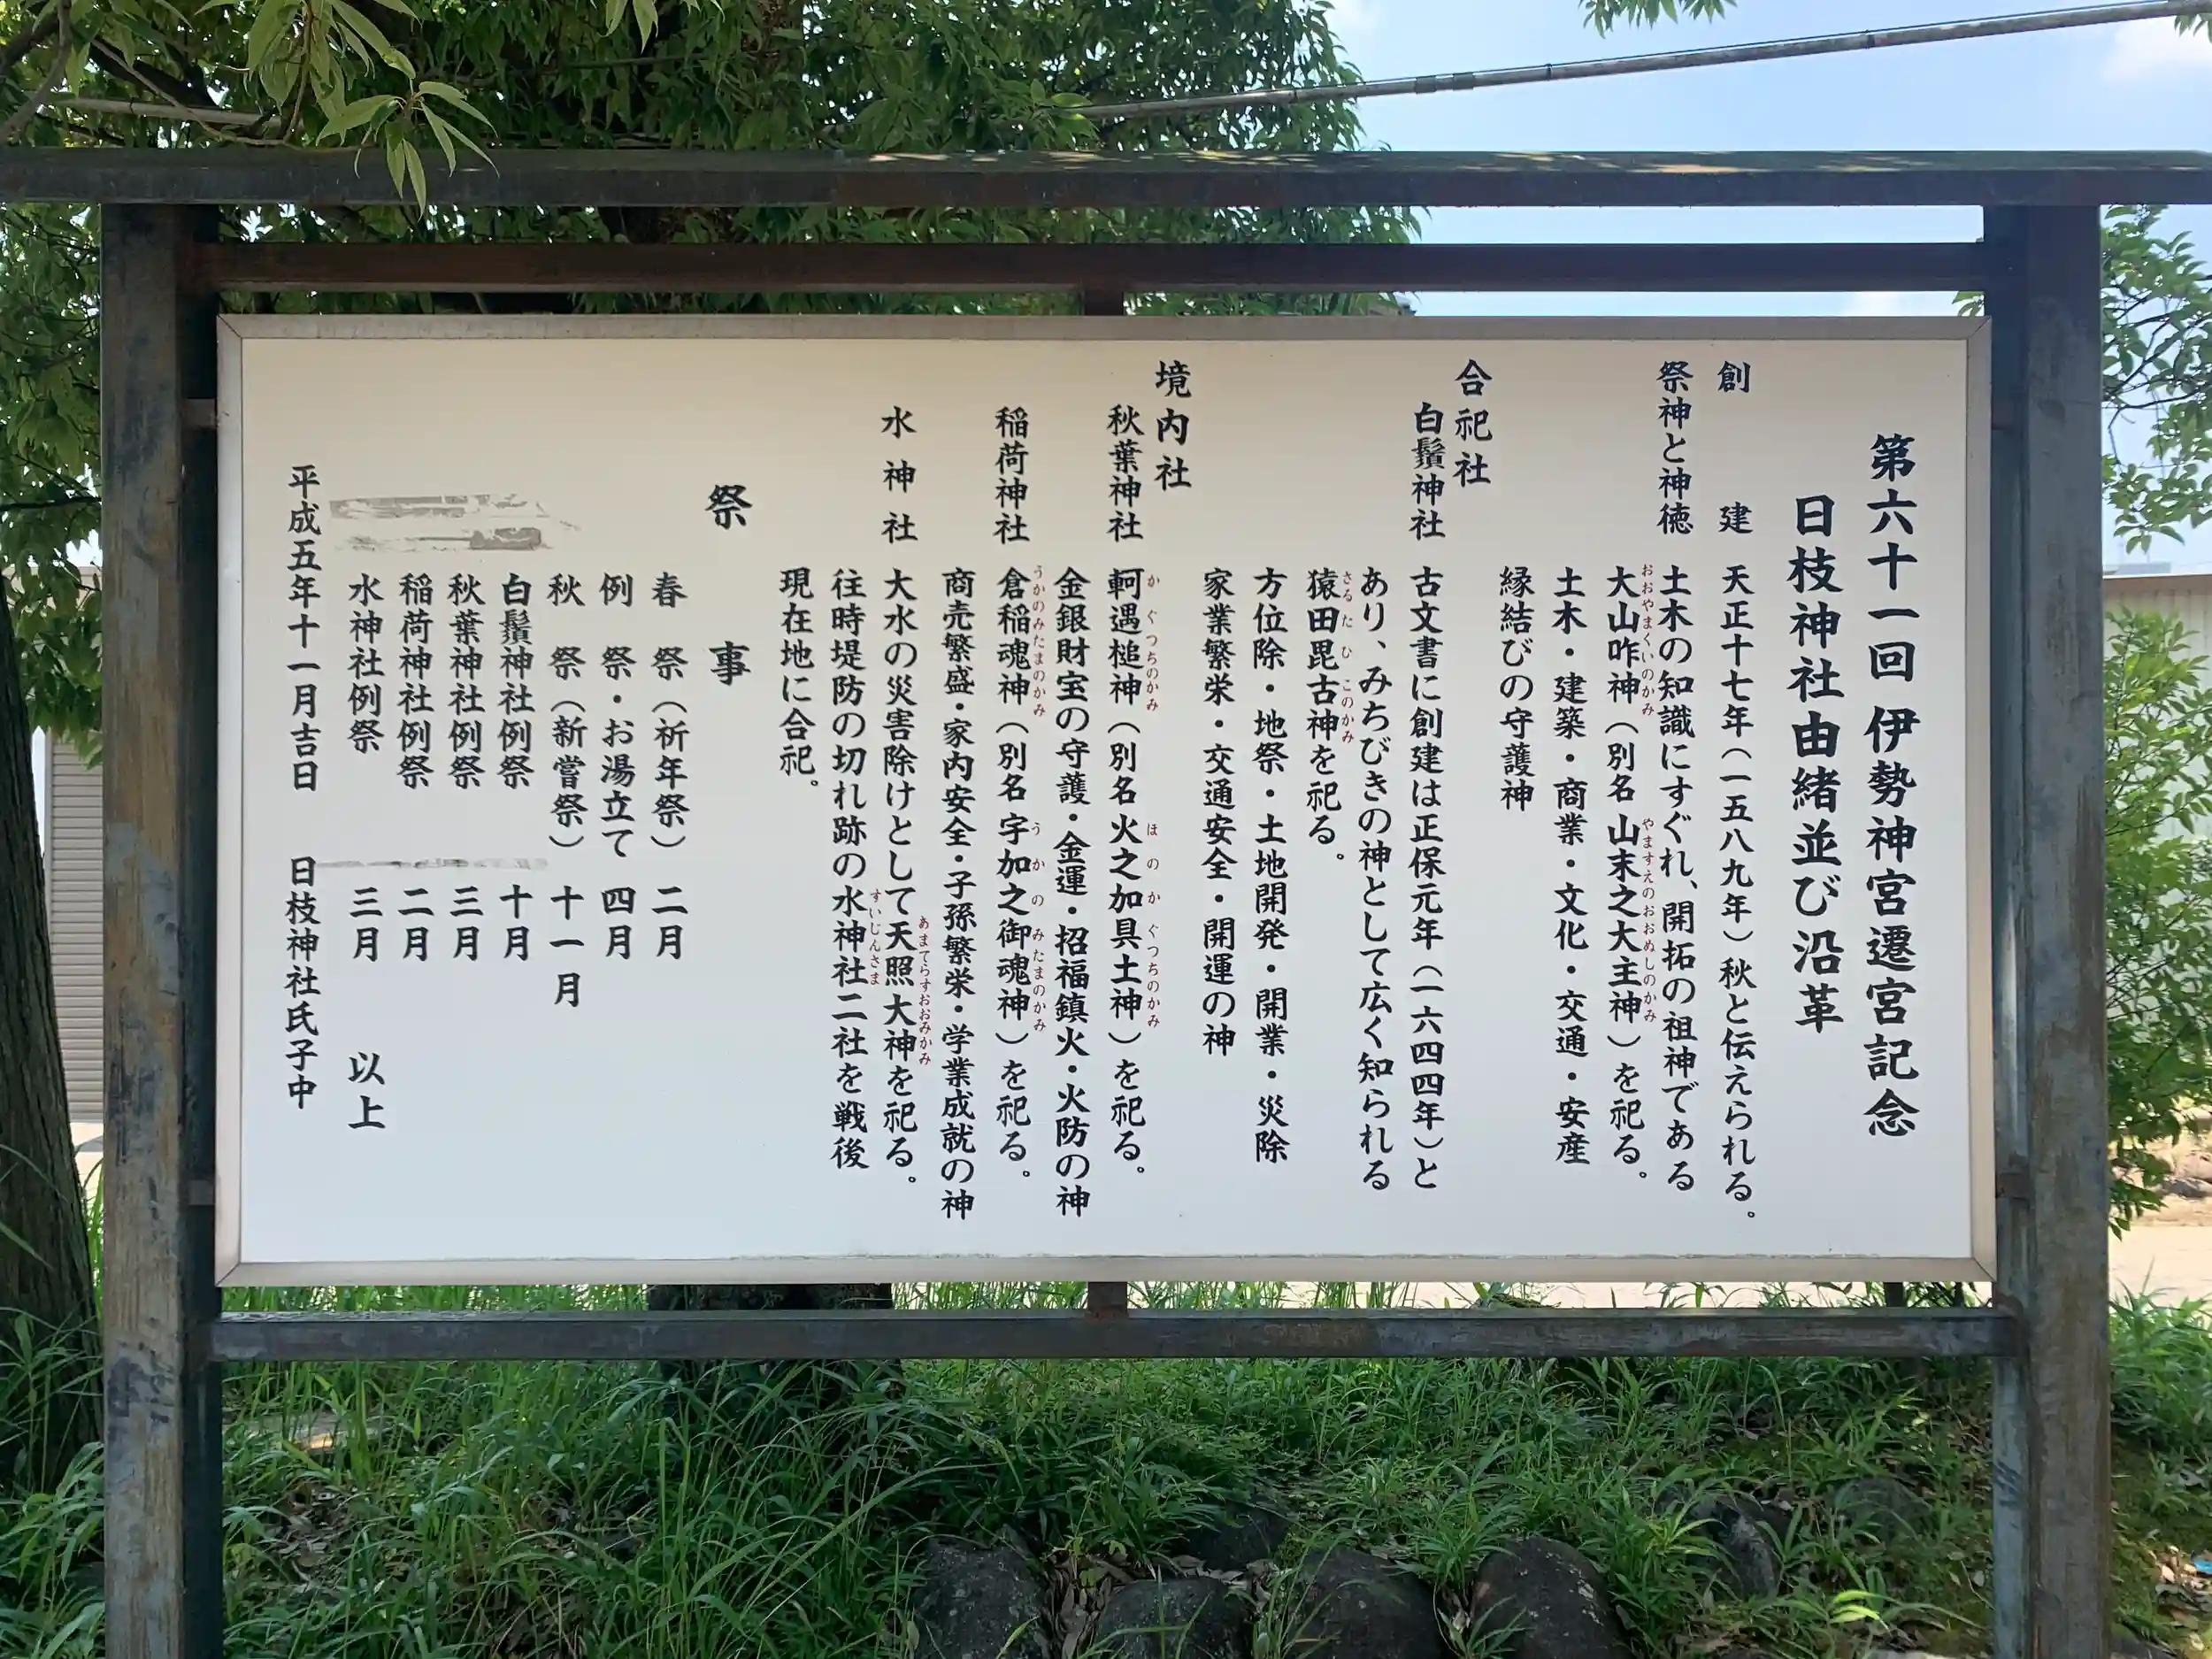 第六十一回 伊勢神宮遷宮記念
日枝神社由緒並び沿革
創建 天正十七年（一五八九年）秋と伝えられる。
祭神と神徳 土木の知識にすぐれ、開拓の祖神である
大山咋神（別名 山末之大主神）を祀る。
おおやまくいのかみ やますえのおおぬしのかみ
土木・建築・商業・文化・交通・安産
縁結びの守護神
合祀社
白鬚神社 古文書に創建は正保元年（一六四四年）と
あり、みちびきの神として広く知られる
猿田毘古神を祀る。
さるたひこのかみ
方位除・地祭・土地開発・開業・災除
家業繁栄・交通安全・開運の神
境内社
秋葉神社 軻遇槌神（別名 火之加具土神）を祀る。
かぐつちのかみ ほのかぐつちのかみ
金銀財宝の守護・金運・招福鎮火・火防の神
稲荷神社 倉稲魂神（別名 宇加之御魂神）を祀る。
うかのみたまのかみ うかのみたまのかみ
商売繁盛・家内安全・子孫繁栄・学業成就の神
水神社 大水の災害除けとして天照大神を祀る。
あまてらすおおみかみ
往時堤防の切れ跡の水神社二社を戦後
すいじんさま
現在地に合祀。
祭事
春祭（祈年祭） 二月
例祭・お湯立て 四月
秋祭（新嘗祭） 十一月
白鬚神社例祭 十月
秋葉神社例祭 三月
稲荷神社例祭 二月
水神社例祭 三月 以上
平成五年十一月吉日 日枝神社氏子中